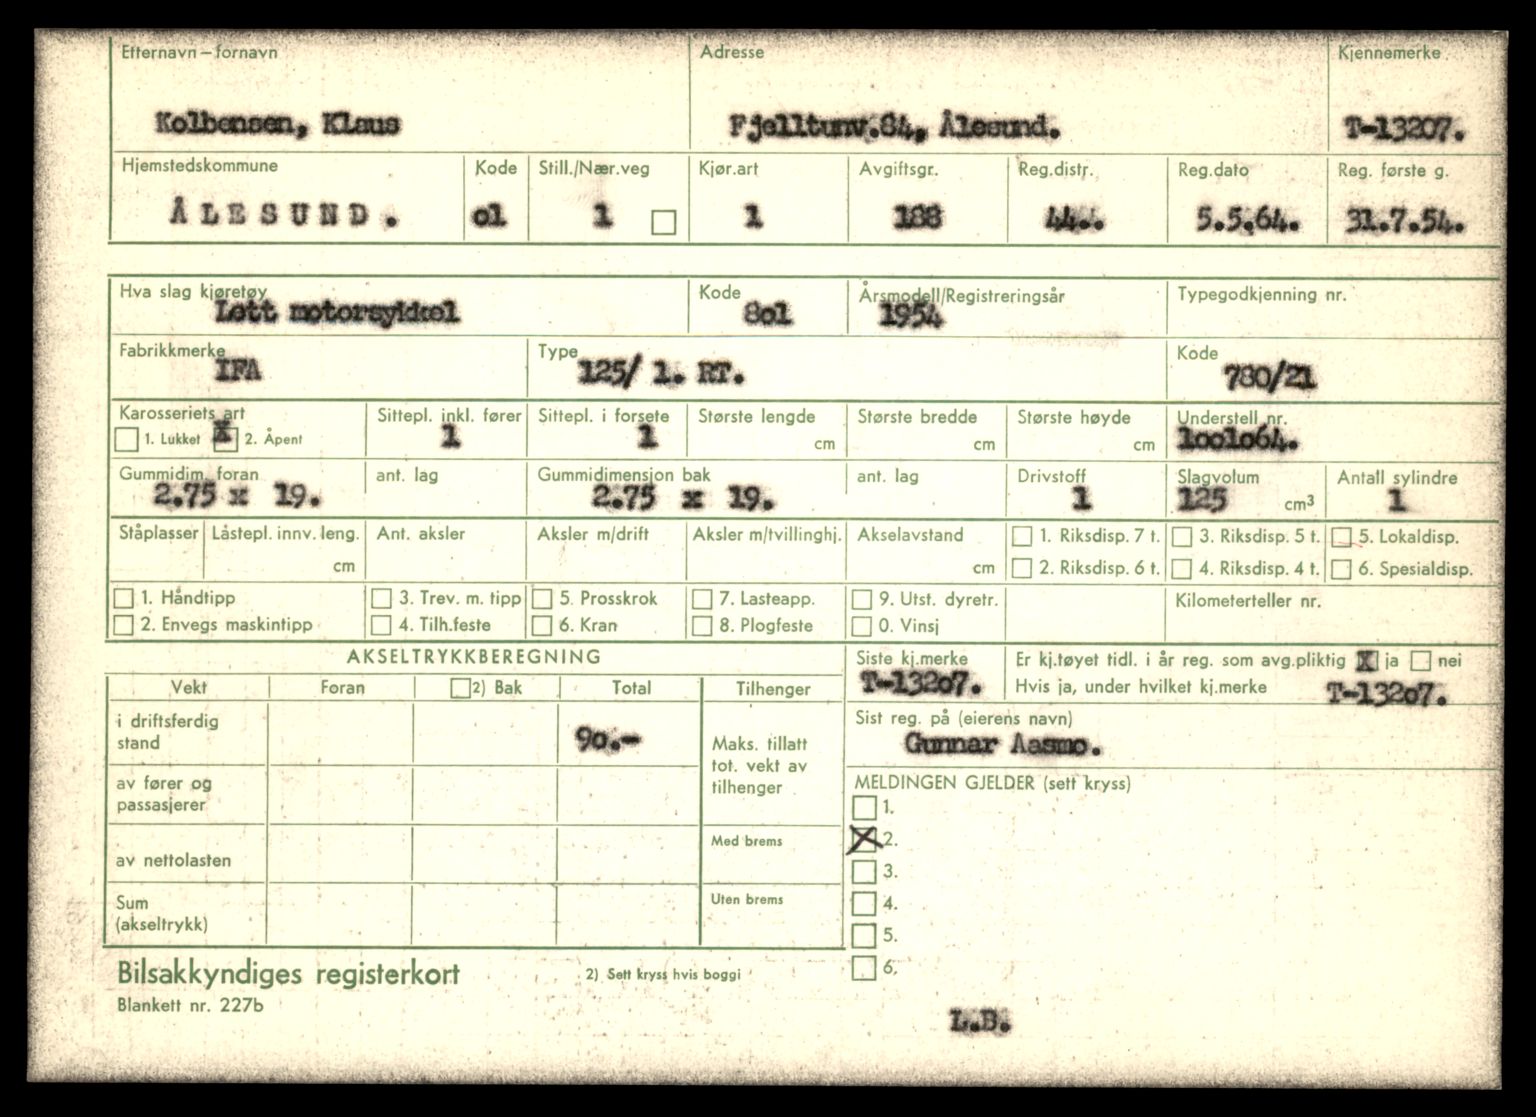 Efternavn – fornavn Adresse Kjennemerke
Kolbensen, Klaus Fjelltunv.84, Ålesund. T-13207.
Hjemstedskommune Kode Still./Nær.veg Kjør.art Avgiftsgr. Reg.distr. Reg.dato Reg. første g.
ÅLESUND. o1 1 1 188 44.. 5.5.64. 31.7.54.
Hva slag kjøretøy Kode Årsmodell/Registreringsår Typegodkjenning nr.
Lett motorsykkel 8o1 1954
Fabrikkmerke Type Kode
IFA 125/ 1. RT. 780/21
Karosseriets art Sittepl. inkl. fører Sittepl. i forsete Største lengde Største bredde Største høyde Understell nr.
1. Lukket X 2. Åpent 1 1 cm cm cm 1oo1o64.
Gummidim. foran ant. lag Gummidimensjon bak ant. lag Drivstoff Slagvolum Antall sylindre
2.75 x 19. 2.75 x 19. 1 125 cm3 1
Ståplasser Låstepl. innv. leng. Ant. aksler Aksler m/drift Aksler m/tvillinghj. Akselavstand 1. Riksdisp. 7 t. 3. Riksdisp. 5 t. 5. Lokaldisp.
cm cm 2. Riksdisp. 6 t. 4. Riksdisp. 4 t. 6. Spesialdisp.
1. Håndtipp 3. Trev. m. tipp 5. Prosskrok 7. Lasteapp. 9. Utst. dyretr. Kilometerteller nr.
2. Envegs maskintipp 4. Tilh.feste 6. Kran 8. Plogfeste 0. Vinsj
AKSELTRYKKBEREGNING Siste kj.merke Er kj.tøyet tidl. i år reg. som avg.pliktig X ja nei
T-132o7. Hvis ja, under hvilket kj.merke T-132o7.
Vekt Foran 2) Bak Total Tilhenger
i driftsferdig stand 9o.- Maks. tillatt tot. vekt av tilhenger
Sist reg. på (eierens navn)
Gunnar Aasmo.
av fører og passasjerer
MELDINGEN GJELDER (sett kryss)
1.
X 2.
Med brems
av nettolasten
3.
Uten brems
4.
Sum (akseltrykk)
5.
6.
Bilsakkyndiges registerkort 2) Sett kryss hvis boggi
Blankett nr. 227b
L.B.